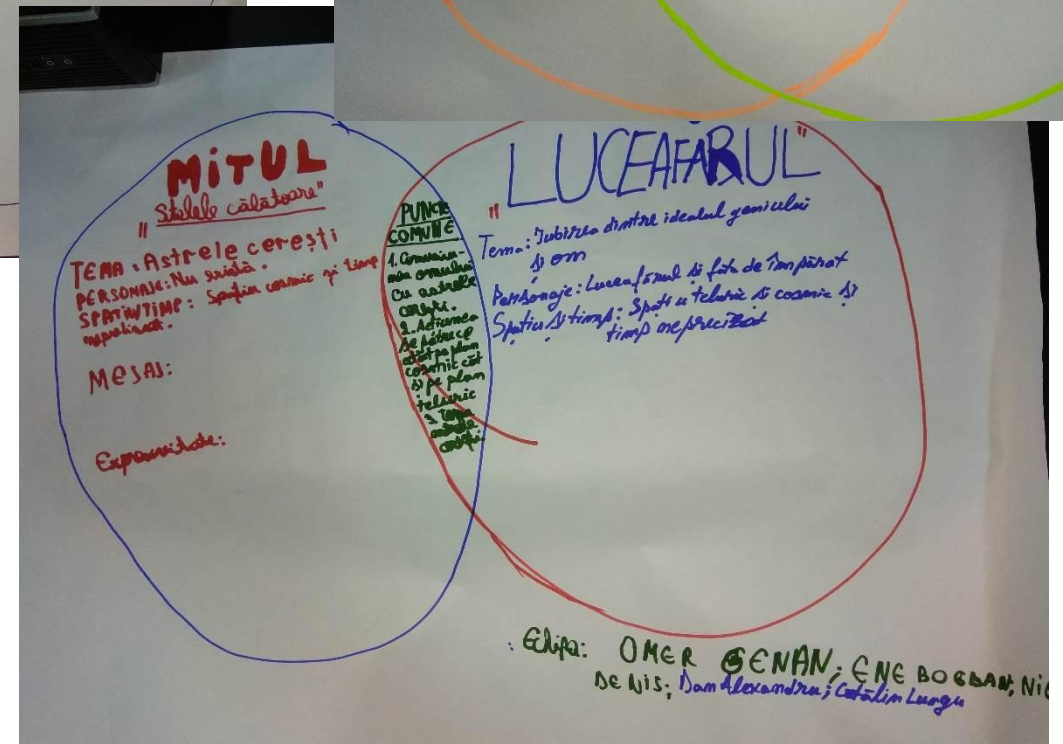 MITUL
"Stelele călătoare"
TEMA: Astrele cerești
PERSONAJE: Nu există.
SPAȚIU/TIMP: Spațiu cosmic și timp
MESAJ:
PUNCTE
COMUNE
1.
omului
cu astrele
cerești.
2. Acțiunea
se petrece
atât pe plan
cosmic cât
și pe plan
teluric
3. Tema
astrele
cerești.
"LUCEAFARUL"
Tema: Iubirea dintre idealul geniului
și om
Personaje: Luceafărul și fata de împărat
Spațiu și timp: Spațiu teluric și cosmic și
timp neprecizat
Echipa: OMER GENAN; ENE BOGDAN;
DENIS; Dan Alexandru; Cătălin Lungu